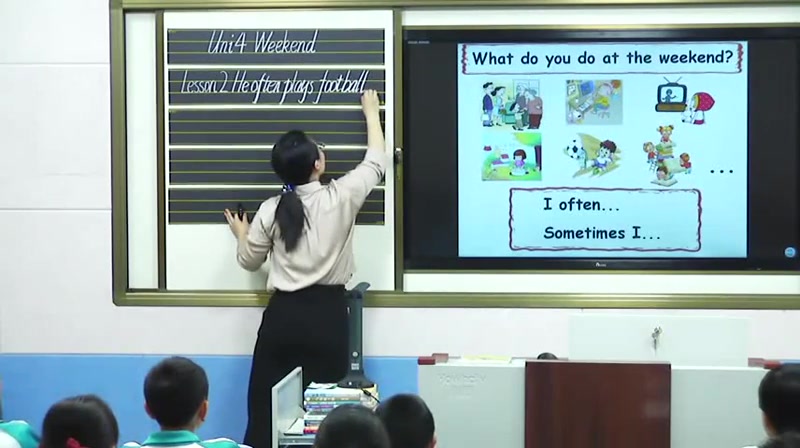 Uni4 Weekend
Lesson 2 He often plays football
What do you do at the weekend?
...
I often...
Sometimes I...